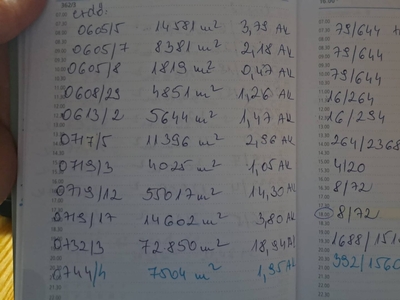 erdő:
0605/5 14581 m² 3,79 AK 79/644
0605/7 8381 m² 2,18 AK 79/644
0605/8 1819 m² 0,47 AK 79/644
0608/29 4851 m² 1,26 AK 16/264
0613/2 5644 m² 1,47 AK 16/294
0717/5 11396 m² 2,96 AK 264/2368
0719/3 4025 m² 1,05 AK 4/20
0719/12 55017 m² 14,30 AK 8/72
0719/17 14602 m² 3,80 AK 8/72
0732/3 72850 m² 18,94 AK 1688/151
0744/4 7504 m² 1,95 AK 392/1560